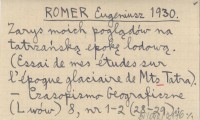 ROMER Eugeniusz 1930.
Zarys moich poglądów na
tatrzańską epokę lodową.
(Essai de mes études sur
l'époque glaciaire de Mts Tatra).
— Czasopismo Geograficzne
(Lwów) 8, nr 1-2 (28-29)